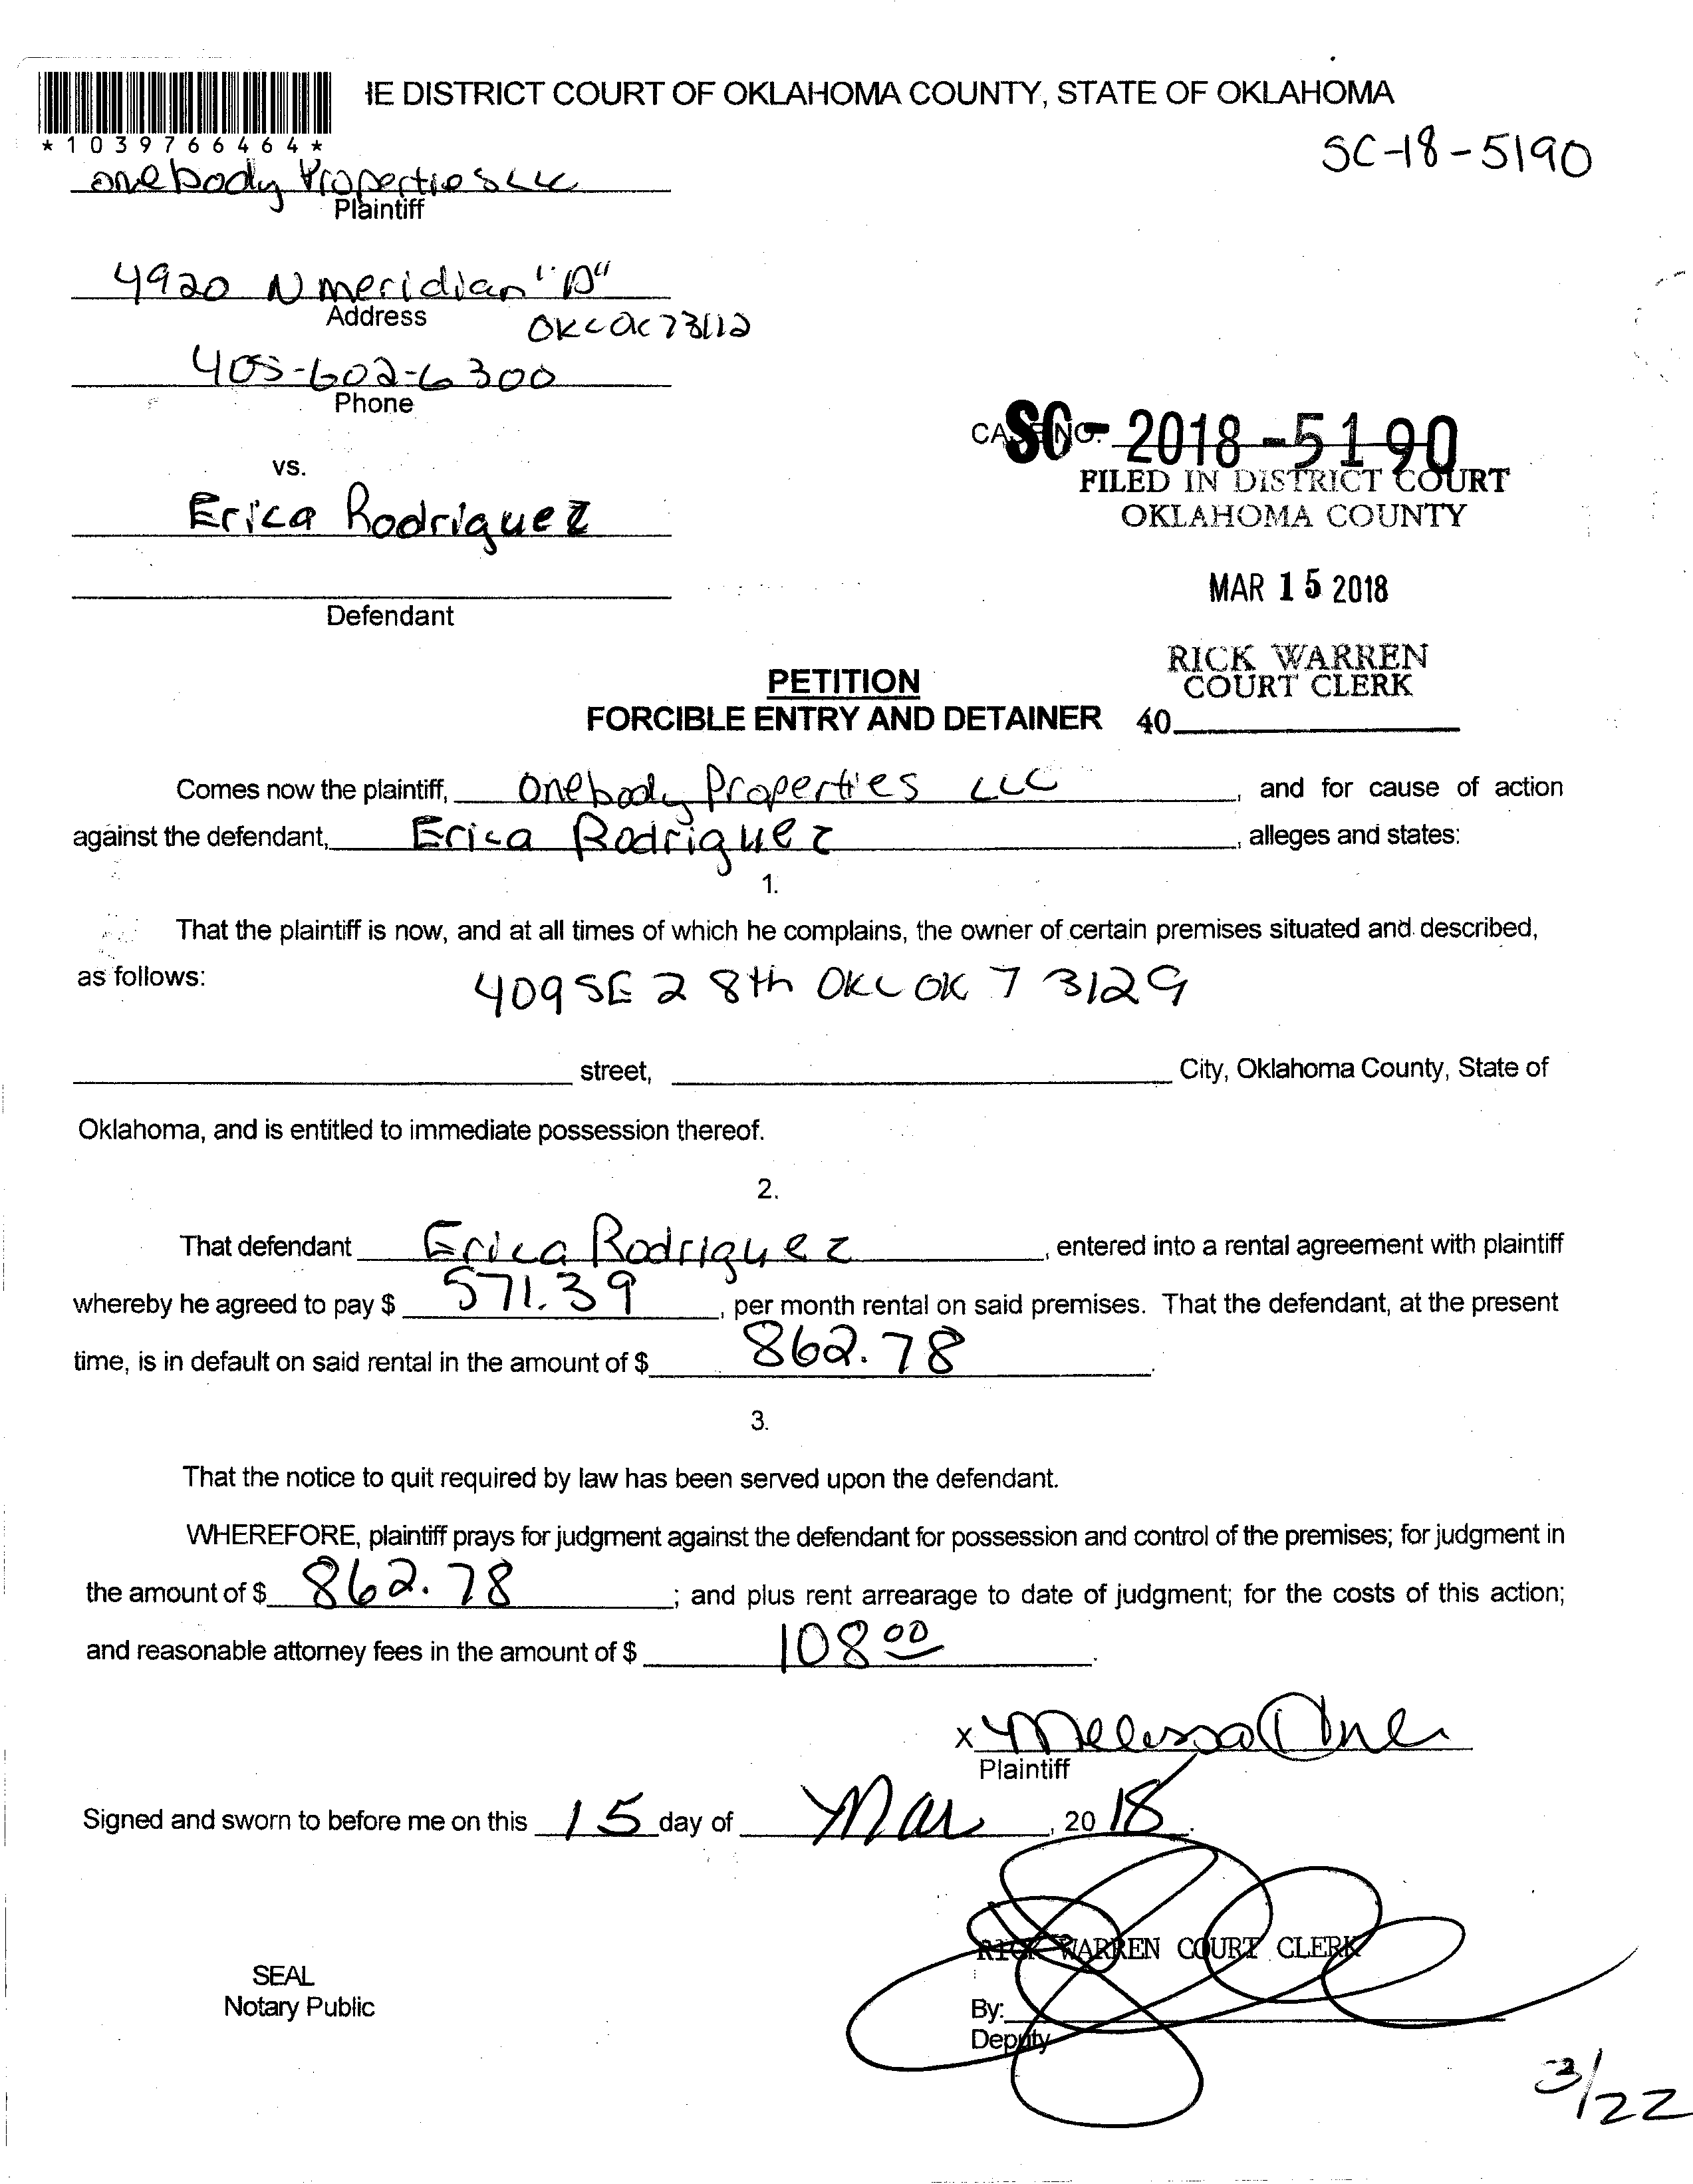 HE DISTRICT COURT OF OKLAHOMA COUNTY, STATE OF OKLAHOMA
*1039766464*
SC-18-5190
onebody Properties LLC
Plaintiff
4920 N meridian "D"
Address
OKC OK 73112
405-602-6300
Phone
CASE NO. SC-2018-5190
FILED IN DISTRICT COURT
OKLAHOMA COUNTY
vs.
Erica Rodriguez
MAR 15 2018
Defendant
RICK WARREN
COURT CLERK
PETITION
FORCIBLE ENTRY AND DETAINER 40
Comes now the plaintiff, Onebody Properties LLC, and for cause of action
against the defendant, Erica Rodriguez, alleges and states:
1.
That the plaintiff is now, and at all times of which he complains, the owner of certain premises situated and described,
as follows: 409 SE 28th OKC OK 73129
street, City, Oklahoma County, State of
Oklahoma, and is entitled to immediate possession thereof.
2.
That defendant Erica Rodriguez, entered into a rental agreement with plaintiff
whereby he agreed to pay $ 571.39, per month rental on said premises. That the defendant, at the present
time, is in default on said rental in the amount of $ 862.78.
3.
That the notice to quit required by law has been served upon the defendant.
WHEREFORE, plaintiff prays for judgment against the defendant for possession and control of the premises; for judgment in
the amount of $ 862.78; and plus rent arrearage to date of judgment; for the costs of this action;
and reasonable attorney fees in the amount of $ 108 00.
x Melissa
Plaintiff
Signed and sworn to before me on this 15 day of Mar, 2018.
RICK WARREN COURT CLERK
SEAL
Notary Public
By:
Deputy
3/22